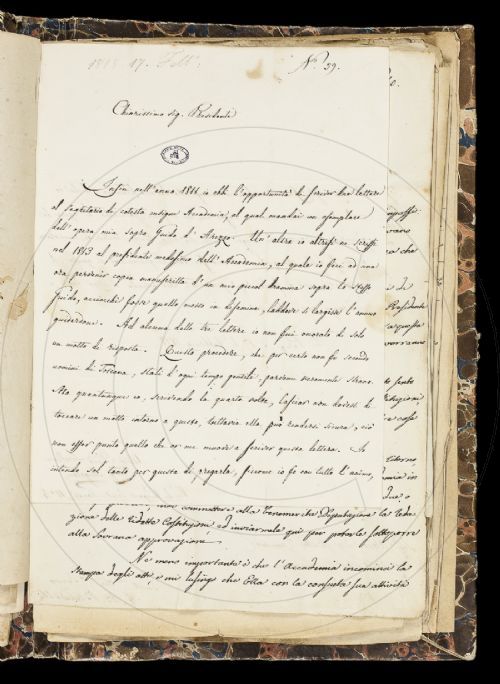 1818 17. Feb.
N.° 39.
Chiarissimo Sig. Presidente
Infin nell'anno 1811 io ebbi l'opportunità di scriver due lettere
al segretario di cotesta insigne Accademia, al qual mandai un esemplare
dell'opera mia sopra Guido d'Arezzo. Un'altra io altresì ne scrissi
nel 1813 al presidente medesimo dell'Accademia, al quale io feci ad una
ora pervenir copia manuscritta d'un mio piccol dramma sopra lo stesso
Guido, acciocchè fosse quello messo in disamina, laddove si largisse l'annuo
guiderdone. Ad alcuna delle tre lettere io non fui onorato di solo
un motto di risposta. Questo procedere, che per certo non fu secondo
uomini di Toscana, stati d'ogni tempo puliti, parvemi veramente strano.
Ma quantunque io, scrivendo la quarta volta, lasciar non dovessi di
toccare un motto intorno a questo, tuttavia ella può rendersi sicura, ciò
non esser punto quello che or me muove a scriver questa lettera. Io
intendo sol tanto per questa di pregarla, siccome io fo con tutto l'animo,
commettere alla Deputazione la
zione delle Costituzioni ed inviarmela qui per poterla sottoporre
alla Sovrana approvazione.
Ne meno importante è che l'Accademia incominci la
stampa degli atti e mi lusingo che Ella con la consueta sua attività